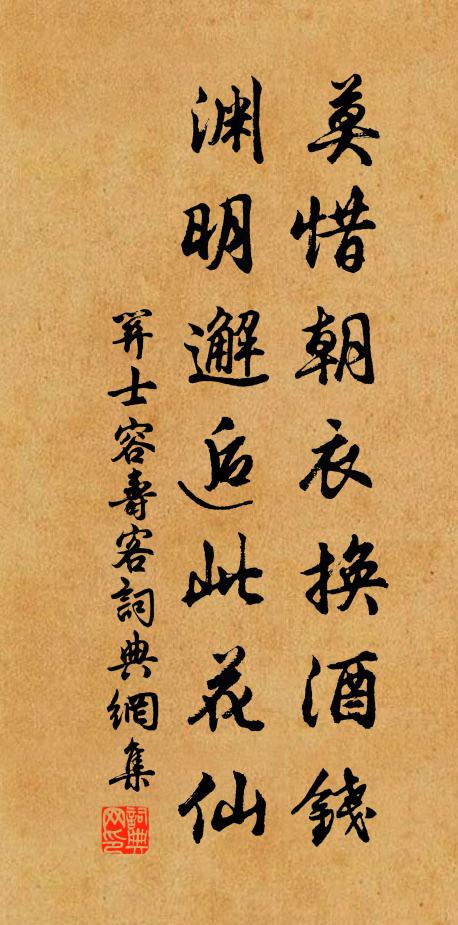 莫惜朝衣換酒錢
渊明邂逅此花仙
羿士容壽客詞典網集
詞典网印